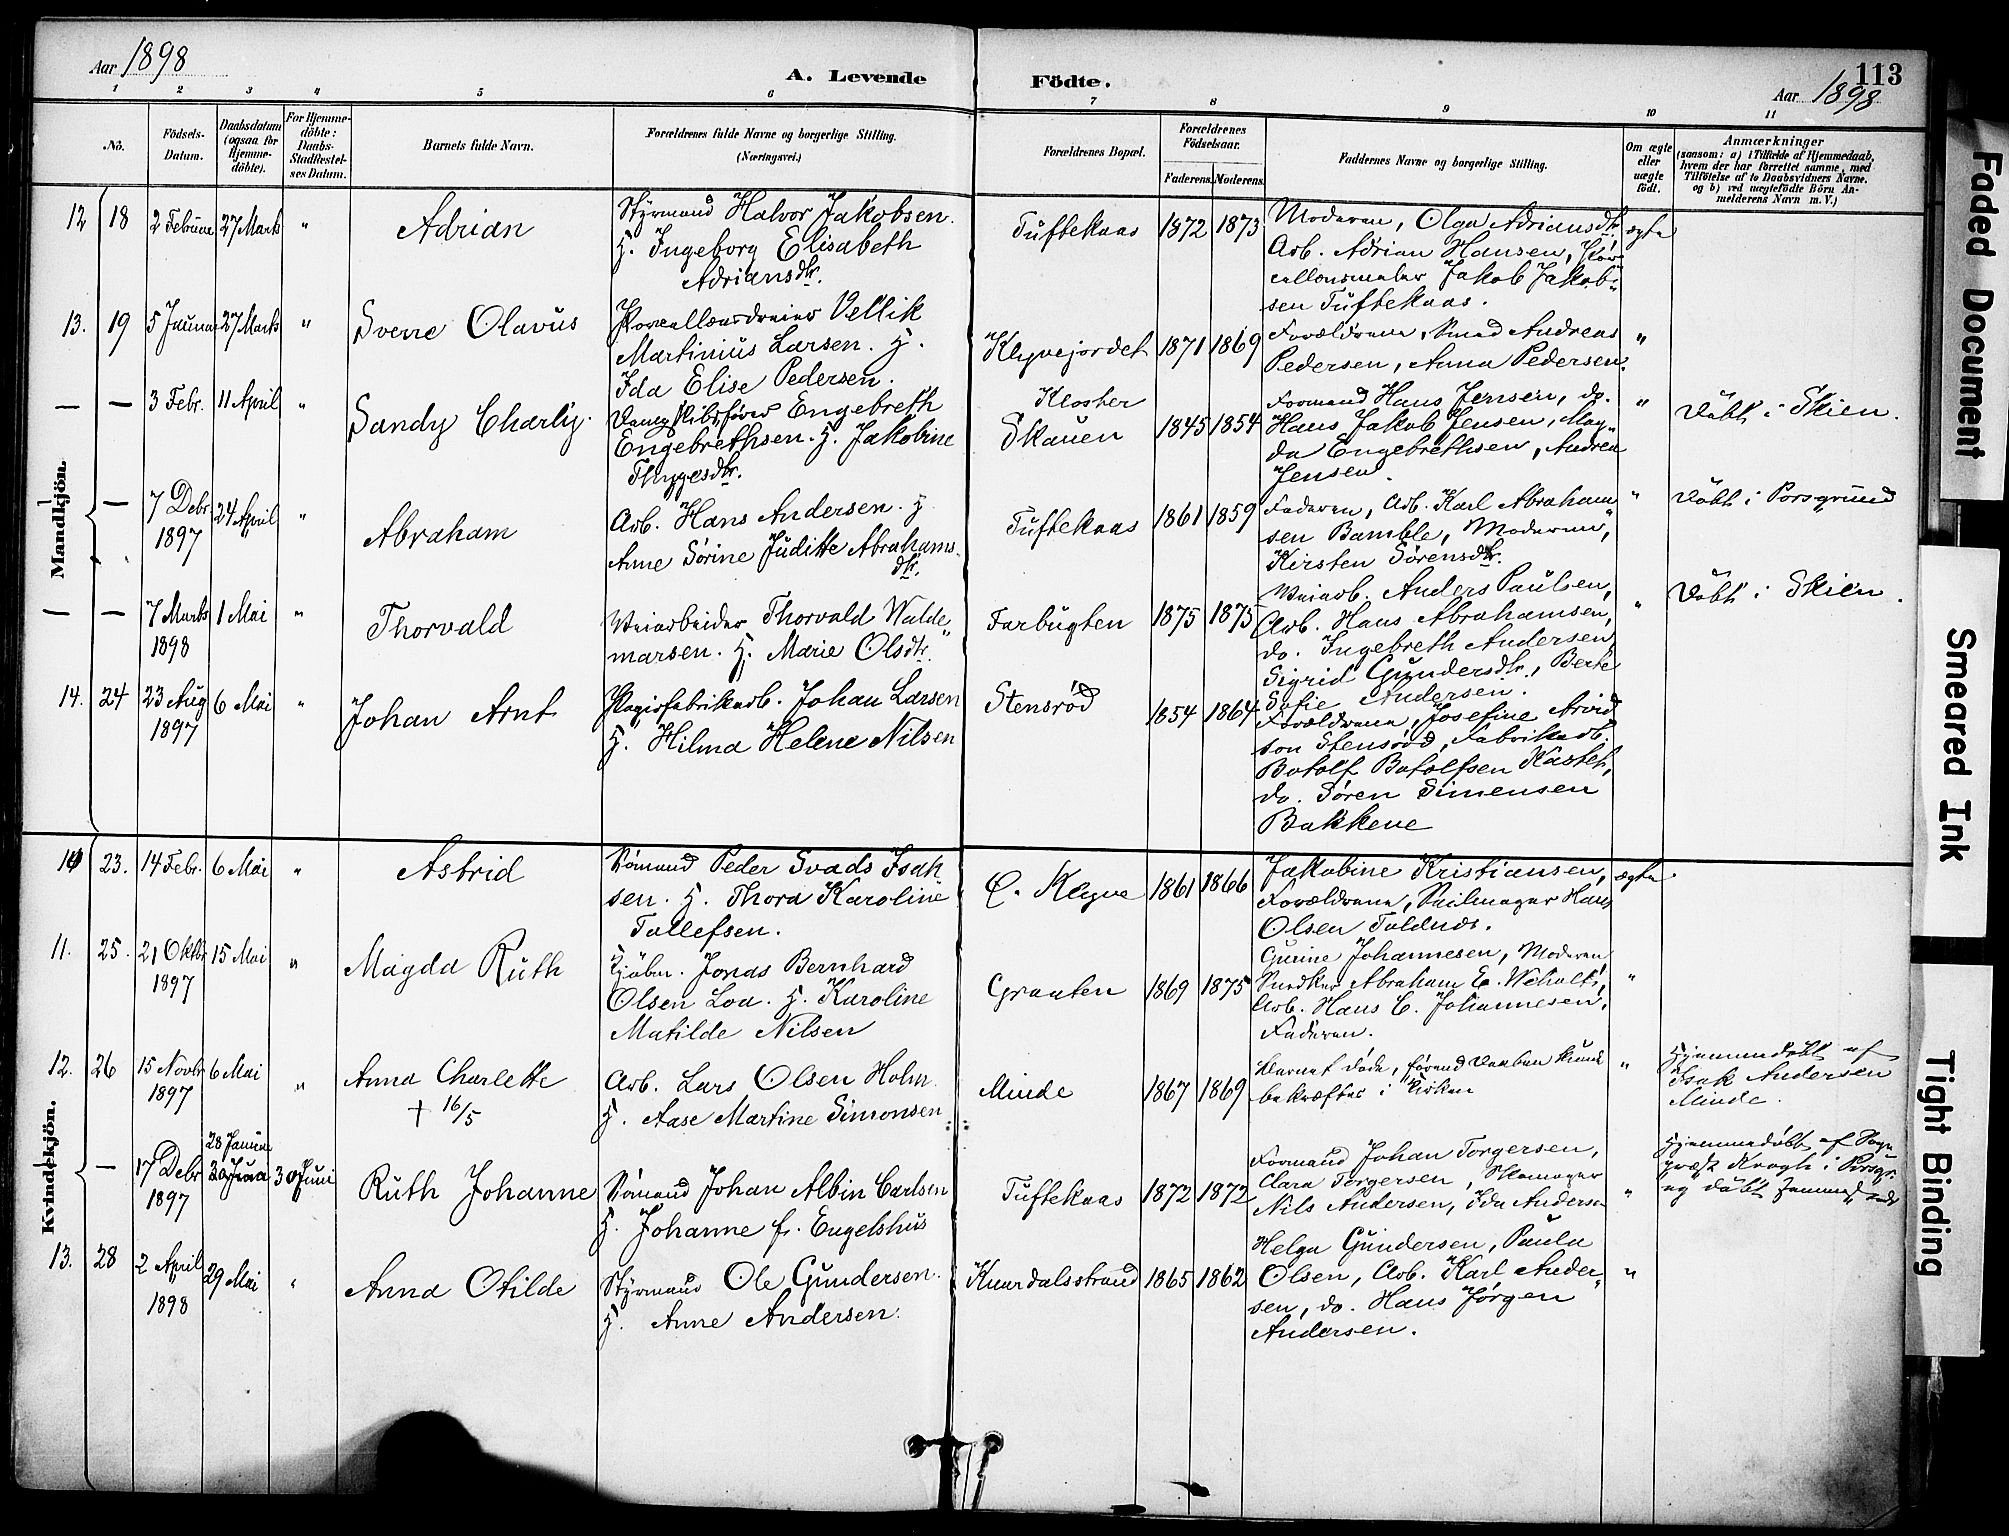 Aar 1898
A. Levende
Födte.
113
Aar 1898
1 2 3 4 5 6 7 8 9 10 11
No.
Födsels-
Datum.
Daabsdatum
(ogsaa for
Hjemme-
döbte).
For Hjemme-
döbte:
Daabs-
Stadfæstel-
ses Datum.
Barnets fulde Navn.
Forældrenes fulde Navne og borgerlige Stilling.
(Næringsvei.)
Forældrenes Bopæl.
Forældrenes
Födselsaar.
Faderens. Moderens.
Faddernes Navne og borgerlige Stilling.
Om ægte
eller
uægte
födt.
Anmærkninger
(saasom: a) i Tilfælde af Hjemmedaab,
hvem der har forrettet samme, med
Tilföielse af to Daabsvidners Navne.
og b) ved uægtefödte Börn An-
melderens Navn m. V.)
Mandkjön.
12 18 2 Februar 27 Marts " Adrian
Styrmand Halvor Jakobsen.
H. Ingeborg Elisabeth
Adriansdtr.
Tuftekaas 1872 1873
Moderen, Olga Adriansdtr.
Arb. Adrian Hansen, Por
cellænsmaler Jakob Jakob-
sen Tuftekaas.
ægte
13. 19 5 Januar 27 Marts " Sverre Olavus
Porcellænsdreier Vellik
Martinius Larsen. H.
Ida Elise Pedersen.
Klyvejordet 1871 1869
Forældrene, Smed Andreas
Pedersen, Anna Pedersen.
"
— — 3 Febr. 11 April " Sandy Charly.
Dampskibsfører Engebreth
Engebrethsen. H. Jakobine
Thygesdtr.
Kloster
Skauen 1845 1854
Formand Hans Jensen, do.
Hans Jakob Jensen, Mag-
da Engebrethsen, Andrea
Jensen.
" Døbt i Skien.
— 7 Debr 1897 24 April " Abraham
Arb. Hans Andersen. H
Anne Sørine Juditte Abrahams-
dtr.
Tuftekaas 1861 1859
Faderen, Arb. Karl Abraham-
sen Bamble, Moderen,
Kirsten Sørensdtr.
" Døbt i Porsgrund
— — 7 Marts 1898 1 Mai " Thorvald
Veiarbeider Thorvald Walde-
marsen. H. Marie Olsdtr.
Farbugten 1875 1875
Veiarb. Anders Paulsen,
Arb. Hans Abrahamsen,
do. Ingebreth Andersen
Sigrid Gundersdtr., Berte
Sofie Andersen.
" Døbt i Skien.
14. 24 23 Aug 1897 6 Mai " Johan Arnt
Papirfabrikarb. Johan Larsen
H. Hilma Helene Nilsen
Stensrød 1854 1864
Forældrene, Josefine Arvid
son Stensrød, Fabrikarb.
Botolf Botolfsen Kastet,
do. Søren Simensen
Bakkene
Kvindekjön.
10 23. 14 Febr. 6 Mai " Astrid
Sømand Peder Svads Isak
sen. H. Thora Karoline
Tollefsen.
Ø. Klyve 1861 1866
Jakobine Kristiansen,
Forældrene, Seilmager Hans
Olsen Tuldnes.
ægte.
11. 25. 21 Oktbr 1897 15 Mai " Magda Ruth
Kjøbm. Jonas Bernhard
Olsen Loa. H. Karoline
Matilde Nilsen
Graaten 1869 1875
Gurine Johannesen, Moderen
Snedker Abraham E. Weholt,
Arb. Hans C. Johannesen,
Faderen.
"
12. 26 15 Novbr 1897 6 Mai " Anna Charlette
† 16/5
Arb. Lars Olsen Holm
H. Aase Martine Simonsen
Minde 1867 1869
Barnet døde, førend Daaben kunde
bekræftes i Kirken
" Hjemmedøbt af
Isak Andersen
Minde.
— 17 Debr 1897 28 Januar 30 Juni 30 Juni Ruth Johanne
Sømand Johan Albin Carlsen
H. Johanne f. Engelshus
Tuftekaas 1872 1872
Formand Johan Torgersen,
Clara Torgersen, Skomager
Nils Andersen, Ida Andersen
" Hjemmedøbt af Sogne
præst Krogh i Porsgr.
og døbt
13. 28 2 April 1898 29 Mai " Anna Otilde
Styrmand Ole Gundersen.
H. Anne Andersen.
Knardalsstrand 1865 1862
Helga Gundersen, Paula
Olsen, Arb. Karl Ander-
sen, do. Hans Jørgen
Andersen.
"
Faded Document
Smeared Ink
Tight Binding